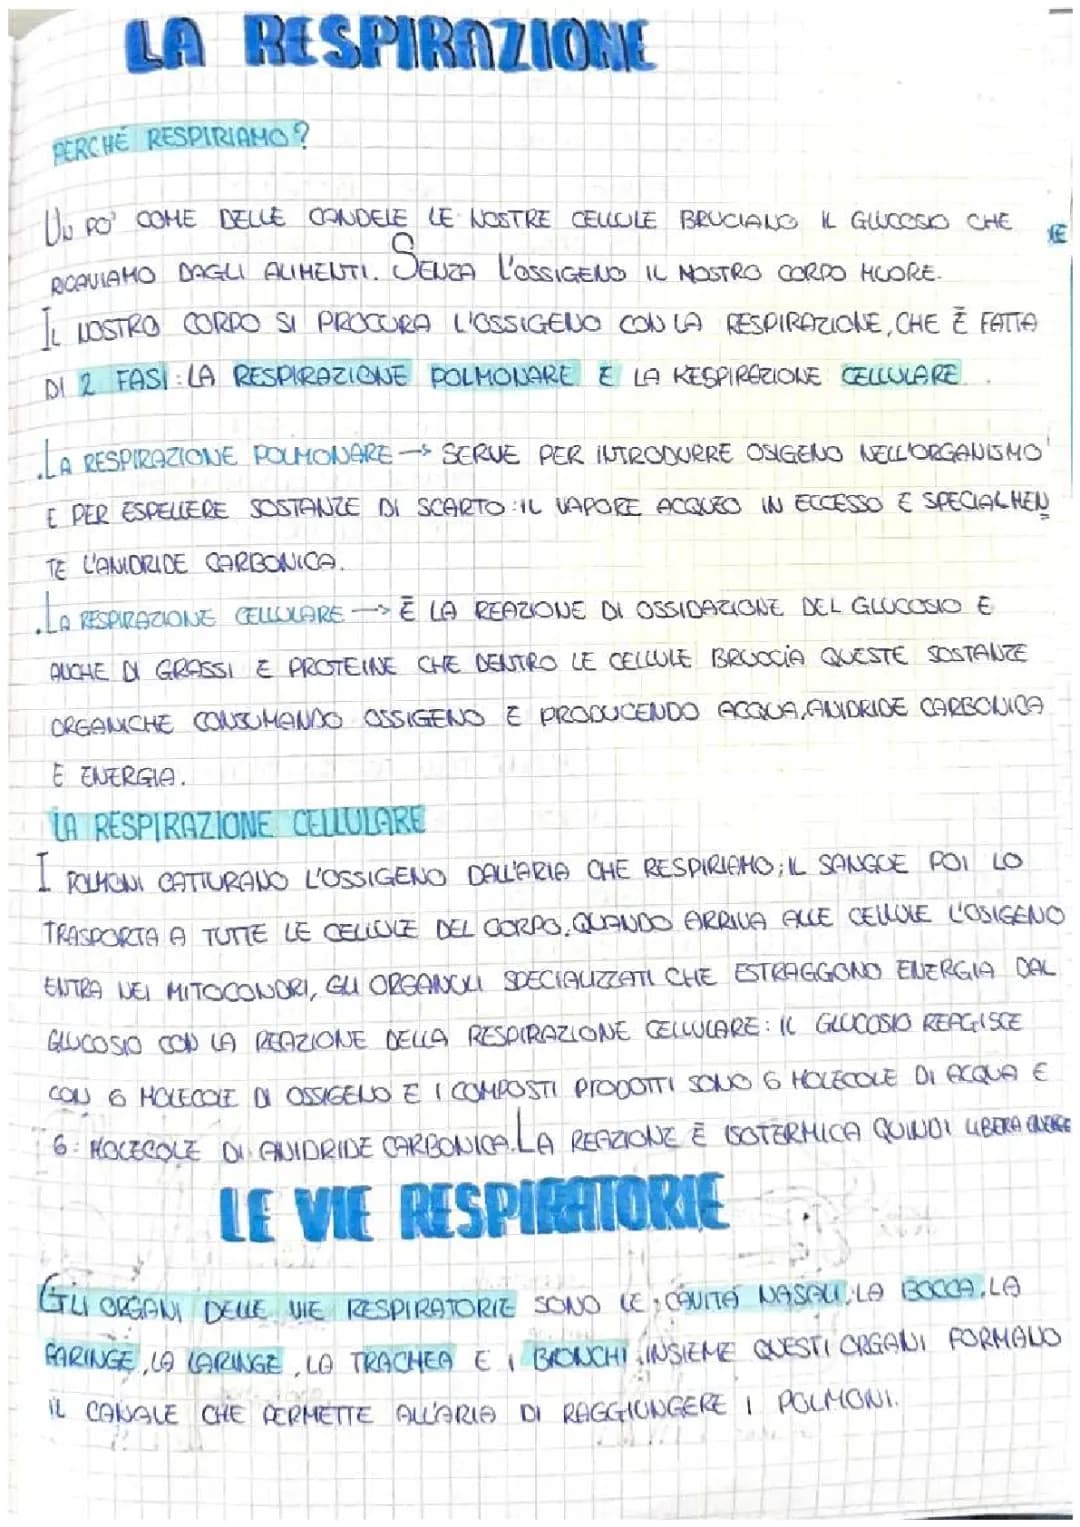 LA RESPIRAZIONE
PERCHÉ RESPIRIAMO?
UN PO' COME DELLE CANDELE LE NOSTRE CELLULE BRUCIANO IL GLUCOSIO CHE
RICAVIAMO DAGLI ALIMENTI. SENZA L'OSSIGENO IL NOSTRO CORPO MUORE.
IL NOSTRO CORPO SI PROCURA L'OSSIGENO CON LA RESPIRAZIONE, CHE È FATTA
DI 2 FASI: LA RESPIRAZIONE POLMONARE E LA RESPIRAZIONE CELLULARE.
.LA RESPIRAZIONE POLMONARE → SERVE PER INTRODURRE OSIGENO NELL'ORGANISMO
E PER ESPELLERE SOSTANZE DI SCARTO: IL VAPORE ACQUEO IN ECCESSO E SPECIALMEN
TE L'ANIDRIDE CARBONICA.
.LA RESPIRAZIONE CELLULARE → È LA REAZIONE DI OSSIDAZIONE DEL GLUCOSIO E
ANCHE DI GRASSI E PROTEINE CHE DENTRO LE CELLULE BRUCCIA QUESTE SOSTANZE
ORGANICHE CONSUMANDO OSSIGENO E PRODUCENDO ACQUA, ANIDRIDE CARBONICA
E ENERGIA.
LA RESPIRAZIONE CELLULARE
I POLMONI CATTURANO L'OSSIGENO DALL'ARIA CHE RESPIRIAMO; IL SANGUE POI LO
TRASPORTA A TUTTE LE CELLULE DEL CORPO. QUANDO ARRIVA ALLE CELLULE L'OSIGENO
ENTRA NEI MITOCONDRI, GLI ORGANULI SPECIALIZZATI CHE ESTRAGGONO ENERGIA DAL
GLUCOSIO CON LA REAZIONE DELLA RESPIRAZIONE CELLULARE: IL GLUCOSIO REAGISCE
CON 6 MOLECOLE DI OSSIGENO E I COMPOSTI PRODOTTI SONO 6 MOLECOLE DI ACQUA E
6 MOLECOLE DI ANIDRIDE CARBONICA. LA REAZIONE È ISOTERMICA QUINDI LIBERA ENERGIE
LE VIE RESPIRATORIE
GLI ORGANI DELLE VIE RESPIRATORIE SONO LE CAVITÀ NASALI, LA BOCCA, LA
FARINGE, LA LARINGE, LA TRACHEA E I BRONCHI. INSIEME QUESTI ORGANI FORMANO
IL CANALE CHE PERMETTE ALL'ARIA DI RAGGIUNGERE I POLMONI.